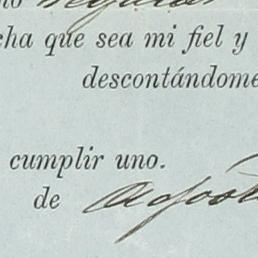 cha que sea mi fiel y
descontándome
cumplir uno.
de Agosto